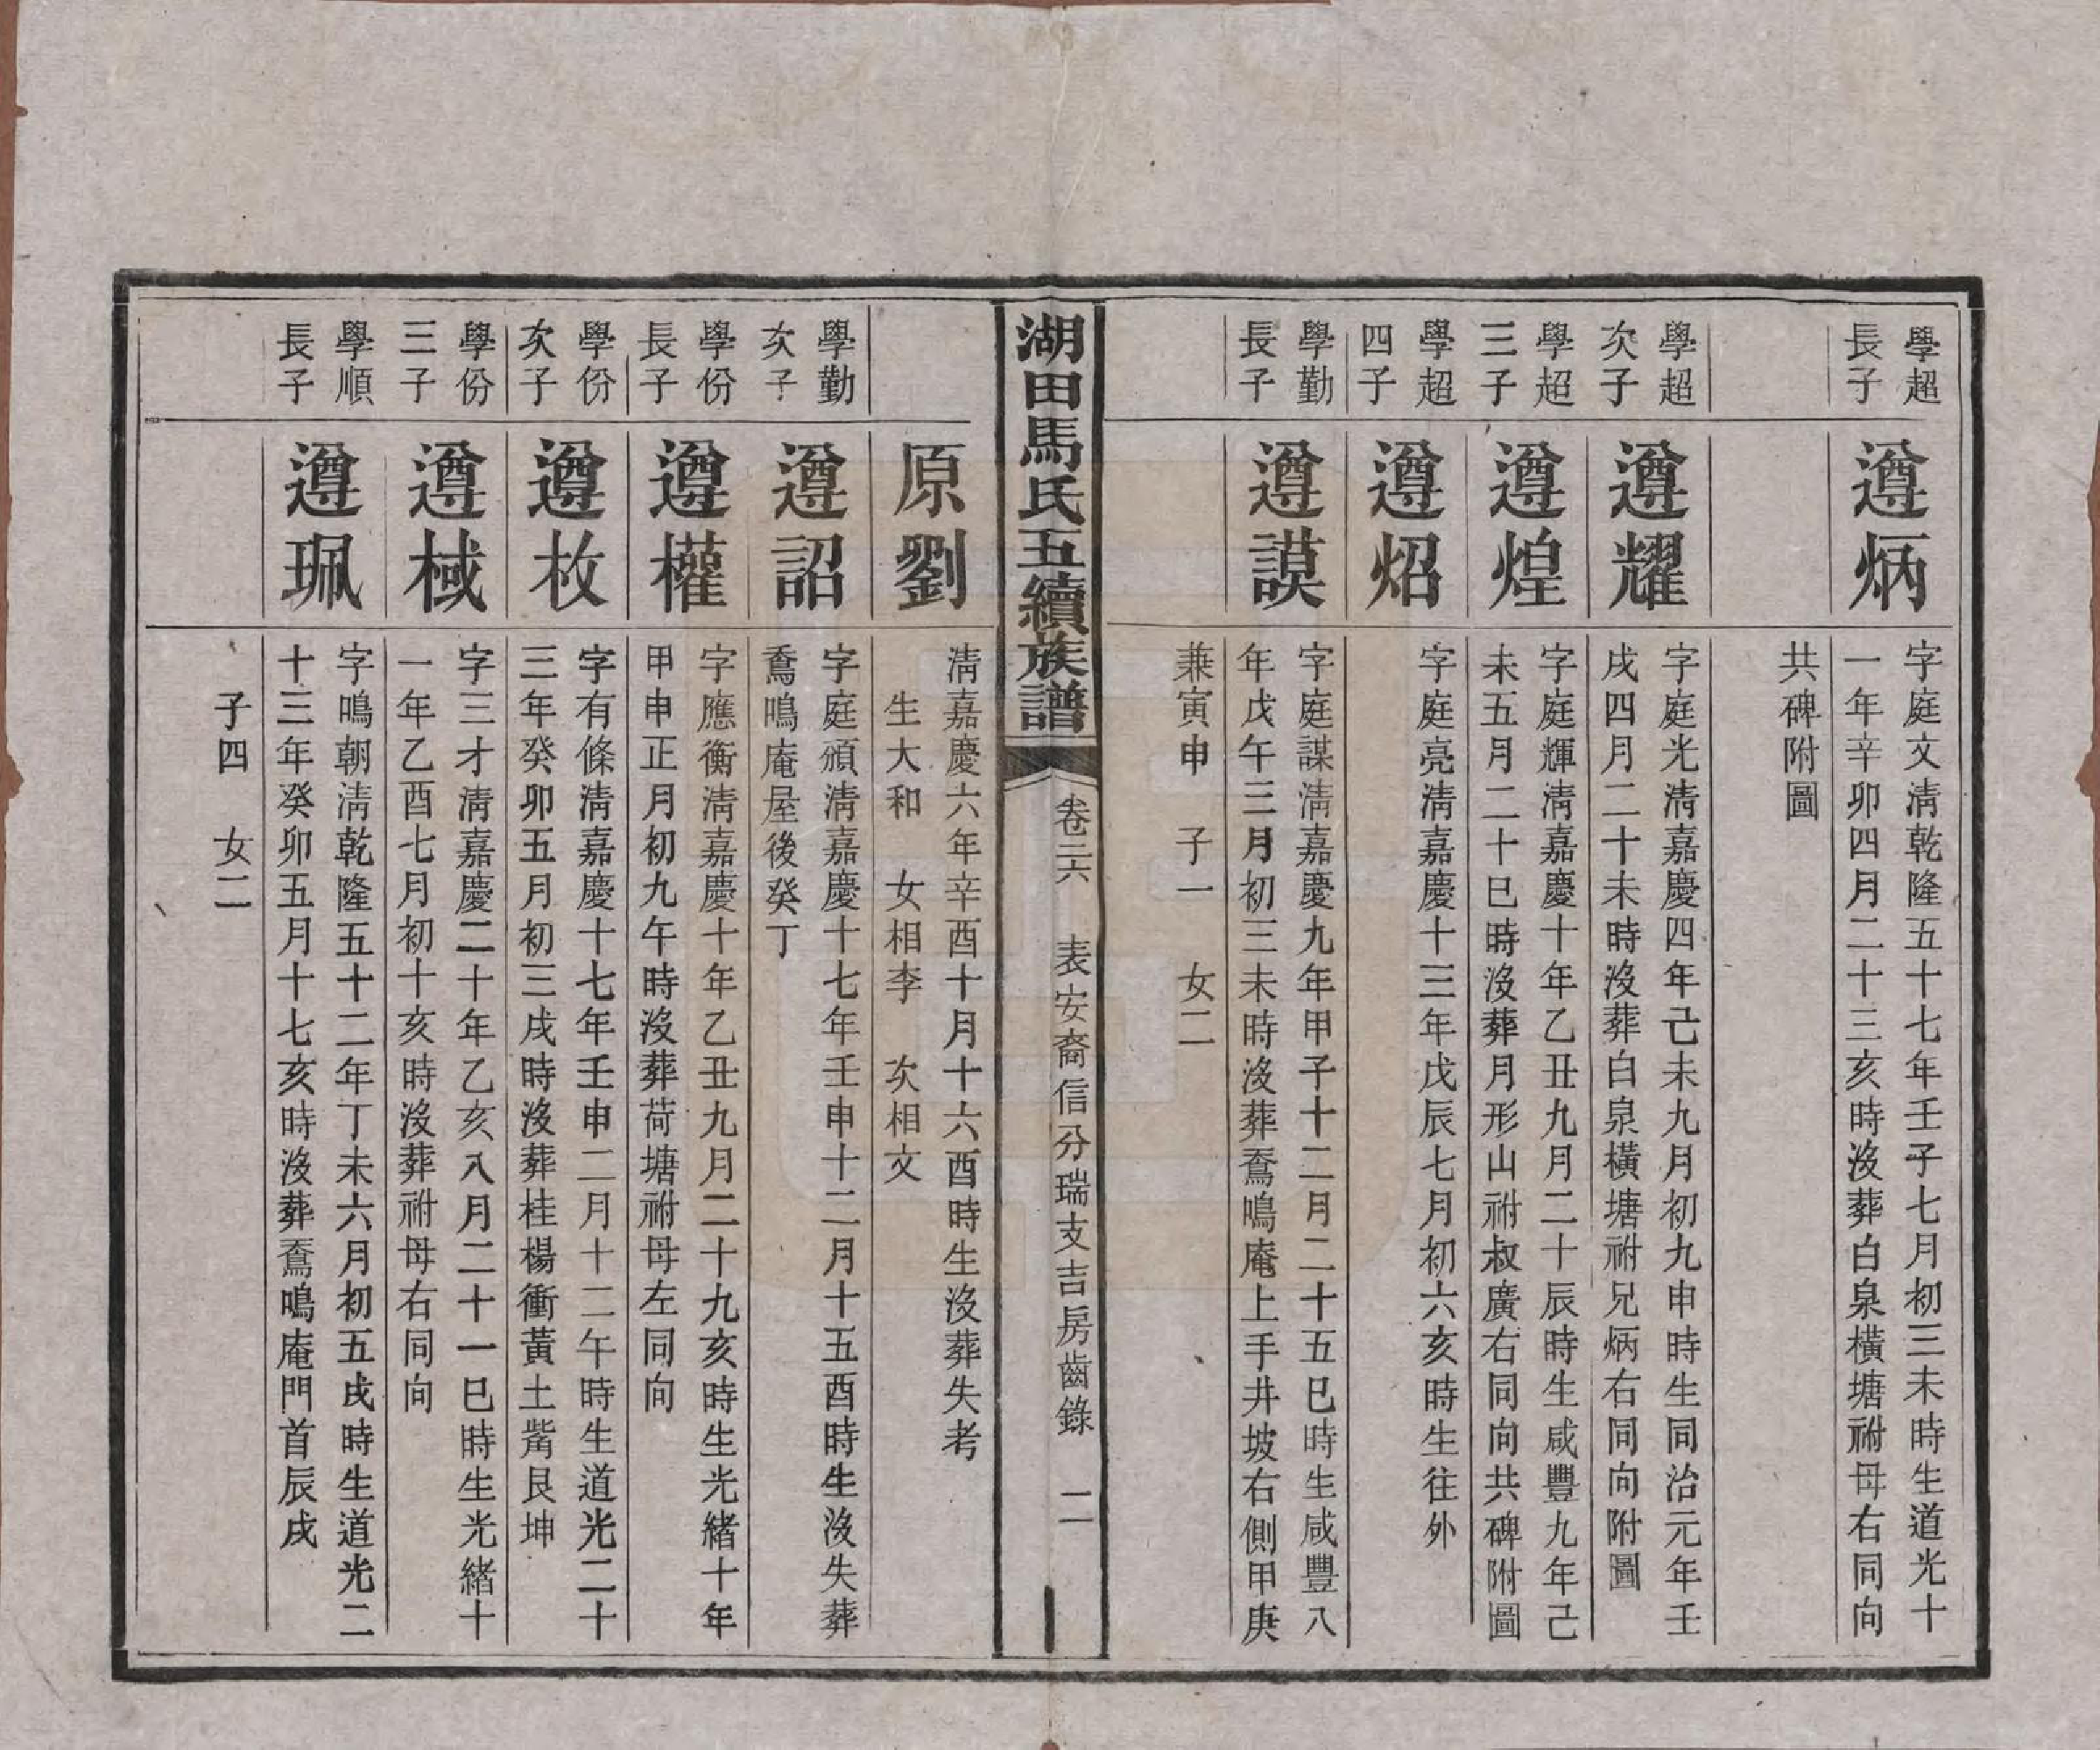 學超
長子
遵炳
字庭文清乾隆五十七年壬子七月初三未時生道光十
一年辛卯四月二十三亥時沒葬白泉橫塘祔母右同向
共碑附圖
學超
次子
遵耀
字庭光清嘉慶四年己未九月初九申時生同治元年壬
戌四月二十未時沒葬白泉橫塘祔兄炳右同向附圖
學超
三子
遵煌
字庭輝清嘉慶十年乙丑九月二十辰時生咸豐九年己
未五月二十巳時沒葬月形山祔叔廣右同向共碑附圖
學超
四子
遵炤
字庭亮清嘉慶十三年戊辰七月初六亥時生往外
學勤
長子
遵謨
字庭謀清嘉慶九年甲子十二月二十五巳時生咸豐八
年戊午三月初三未時沒葬鴌鳴庵上手井坡右側甲庚
兼寅申　子一　女二
湖田馬氏五續族譜
卷三六　表安裔信分瑞支吉房齒錄　二
原劉
清嘉慶六年辛酉十月十六酉時生沒葬失考
生大和　女相李　次相文
學勤
次子
遵詔
字庭頒清嘉慶十七年壬申十二月十五酉時生沒失葬
鴌鳴庵屋後癸丁
學份
長子
遵權
字應衡清嘉慶十年乙丑九月二十九亥時生光緒十年
甲申正月初九午時沒葬荷塘祔母左同向
學份
次子
遵枚
字有條清嘉慶十七年壬申二月十二午時生道光二十
三年癸卯五月初三戌時沒葬桂楊衝黃土嘴艮坤
學份
三子
遵棫
字三才清嘉慶二十年乙亥八月二十一巳時生光緒十
一年乙酉七月初十亥時沒葬祔母右同向
學順
長子
遵珮
字鳴朝清乾隆五十二年丁未六月初五戌時生道光二
十三年癸卯五月十七亥時沒葬鴌鳴庵門首辰戌
子四　女二